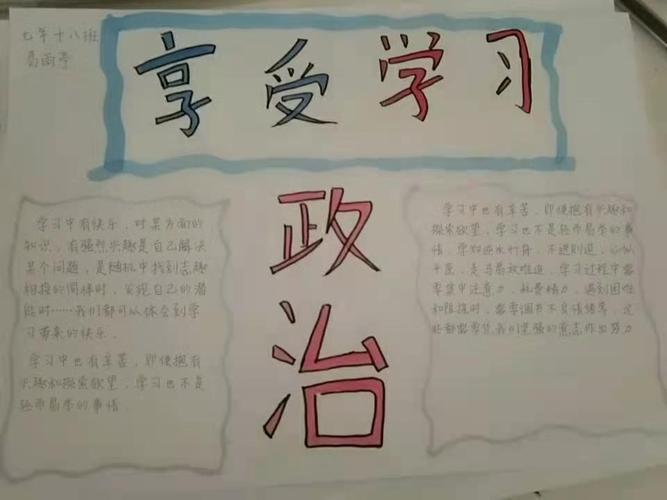 七年十八班
享受学习
政治
学习中有快乐，对某方面的
知识，有强烈兴趣是自己解决
某个问题，是随机中找到志趣
相投的同伴时，发现自己的潜
能时……我们都可以体会到学
习带来的快乐．
学习中也有辛苦，即便抱有
兴趣和探索欲望，学习也不是
轻而易举的事情．
学习中也有辛苦，即便抱有兴趣和
探索欲望，学习也不是轻而易举的事
情，学如逆水行舟，不进则退，心似
平原，走马易放难追，学习过程中需
要集中注意力，耗费精力，遇到困难
和阻挠时，需要调节不良情绪等，这
些都需要凭我们坚强的意志作出努力